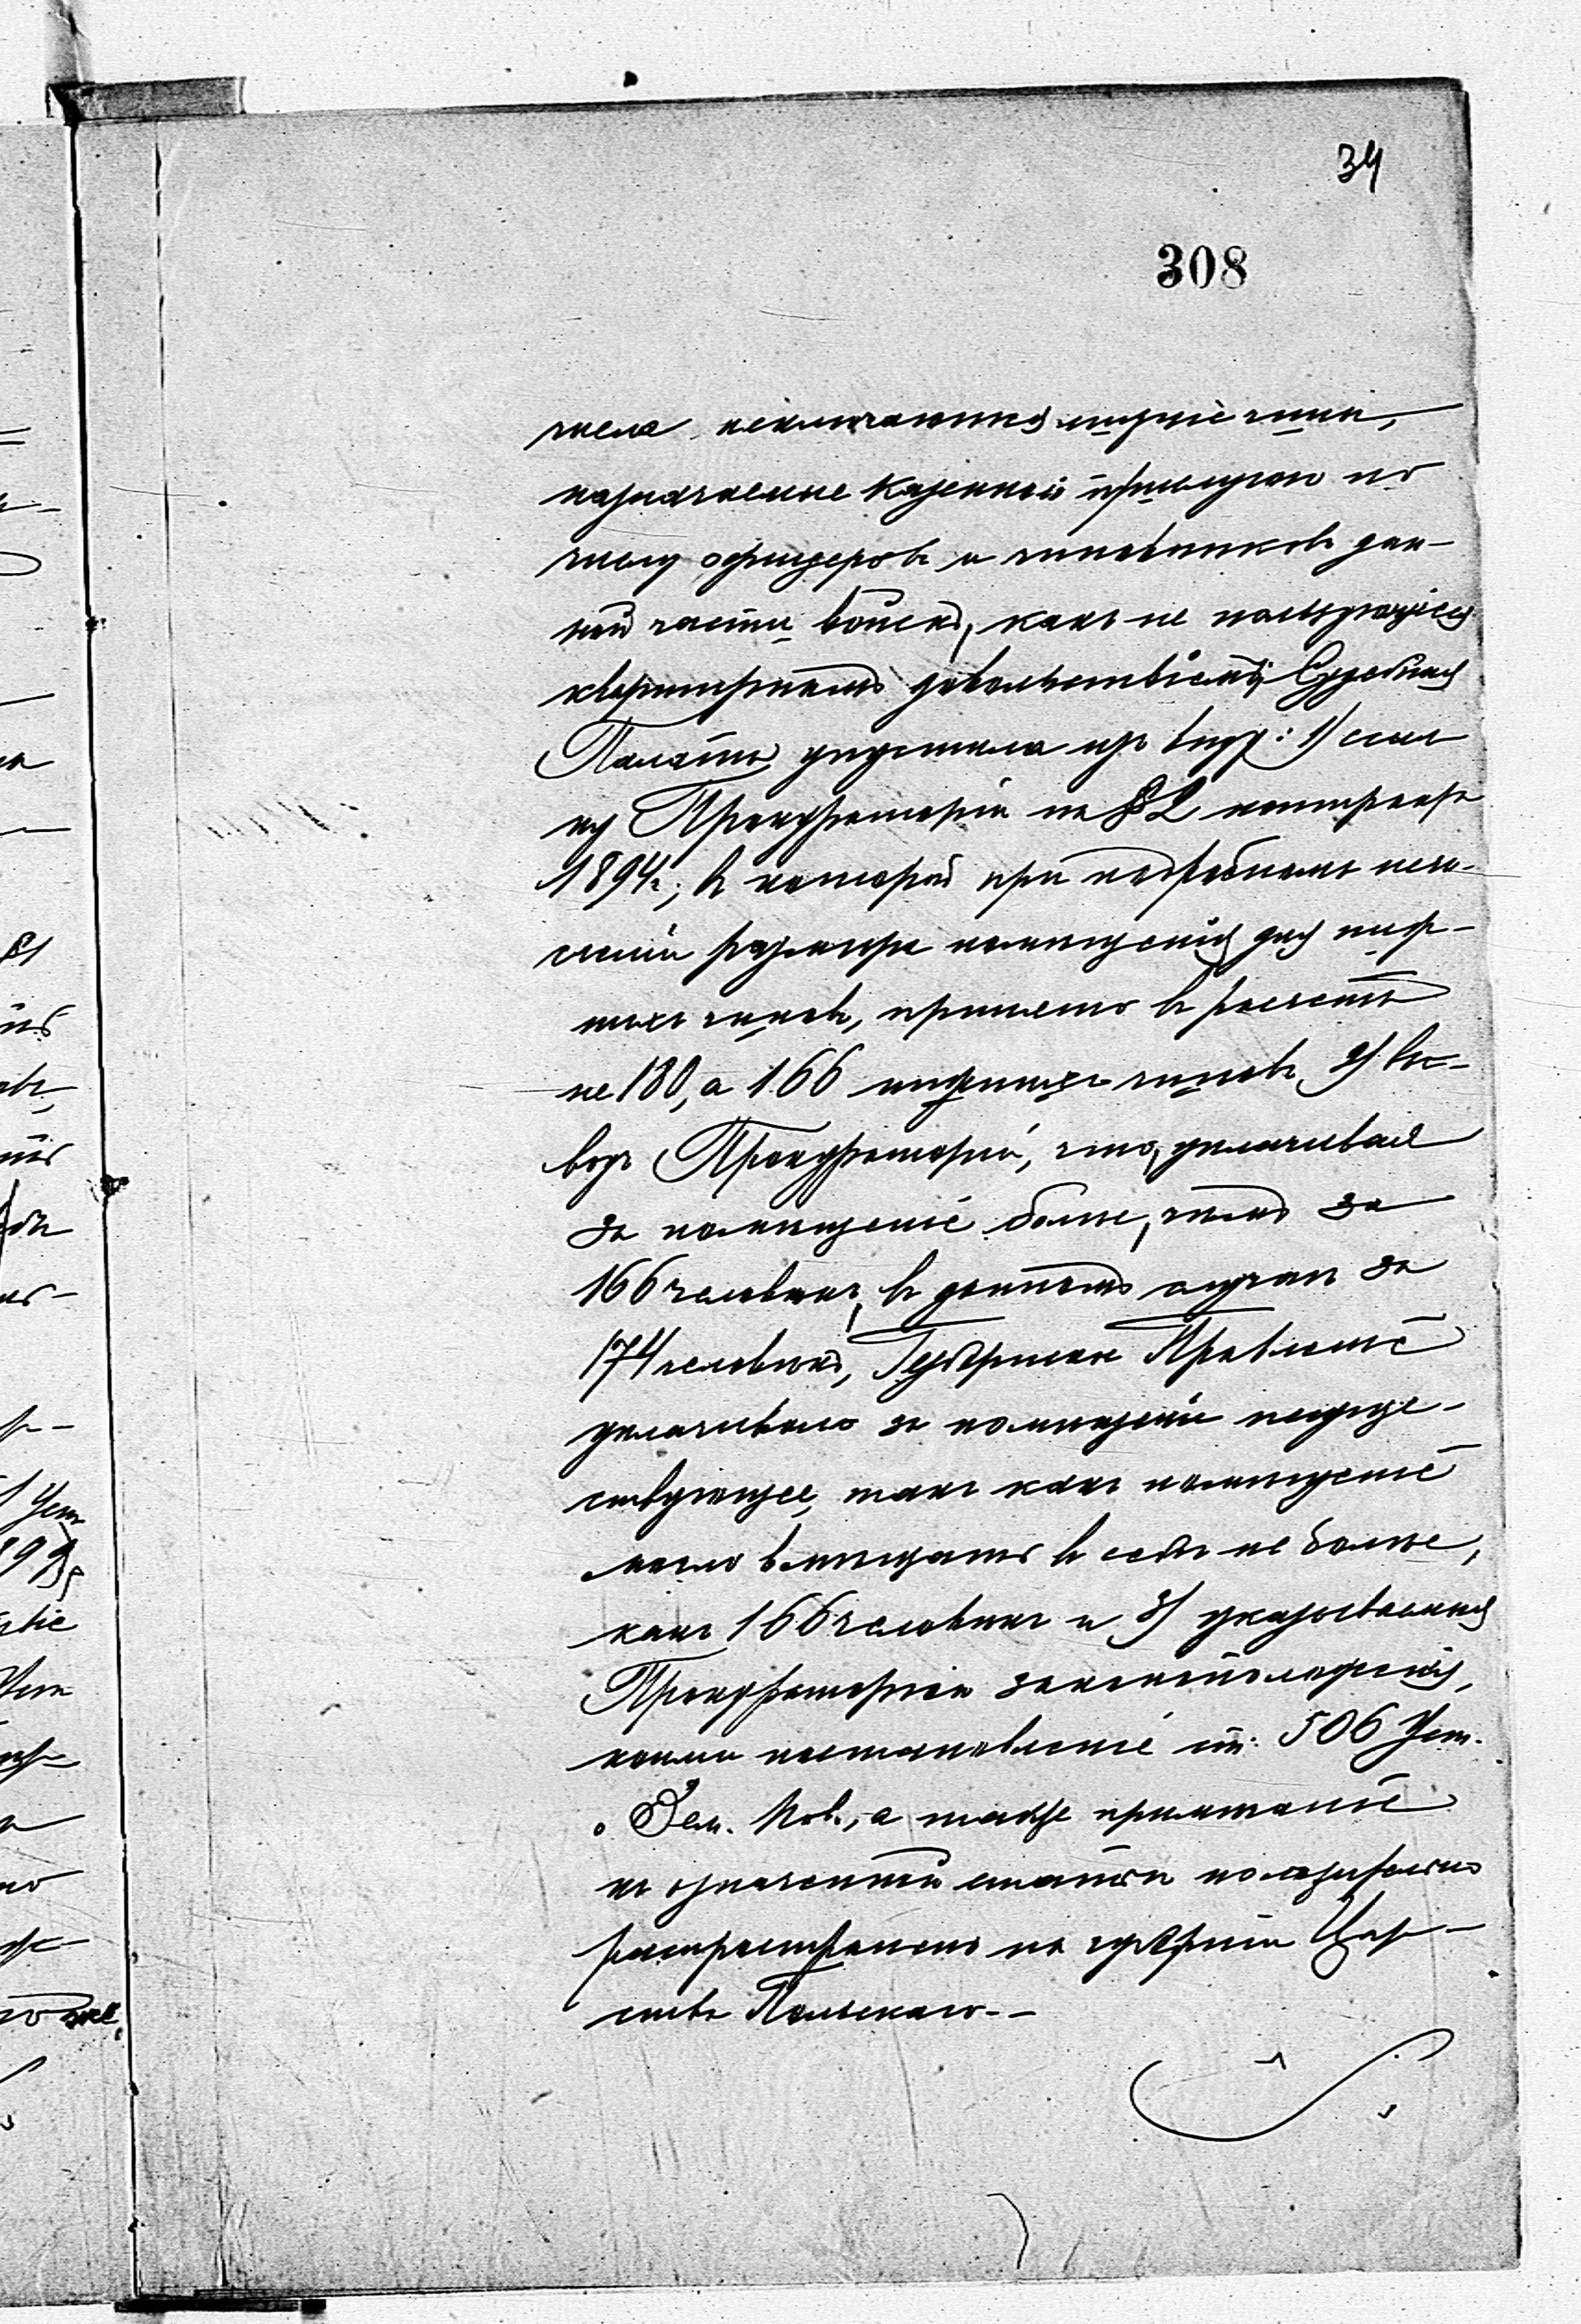 34
308
числа исключаются нижніе чины,
назначаемые казенной прислугою по
числу офицеровъ и чиновниковъ дан-
ной части войскъ, какъ не пользующіеся
квартирнымъ довольствіемъ; Судебная
Палата упустила изъ виду: 1) ссыл
ку Прокураторіи на § 2 контракта
1894 г., въ которой при подробномъ исчи-
сленіи размѣра помѣщенія для ниж-
нихъ чиновъ, принято въ расчетъ
не 180, а 166 нижнихъ чиновъ, 2) вы-
водъ Прокураторіи, что, уплачивая
за помѣщеніе болѣе, чѣмъ за
166 человѣкъ, въ данномъ случаѣ за
174 человѣка, Губернское Правленіе
уплачивало за помѣщеніе несуще-
ствующее, такъ какъ помѣщеніе
могло вмѣщать въ себѣ не болѣе,
какъ 166 человѣкъ и 3) указываемыя
Прокураторіею законоположенія,
коими постановленіе ст. 506 Уст.
о Зем. Пов., а также примѣчаніе
къ означенной статьѣ
распространено на губерніи Цар-
ства Польскаго.--